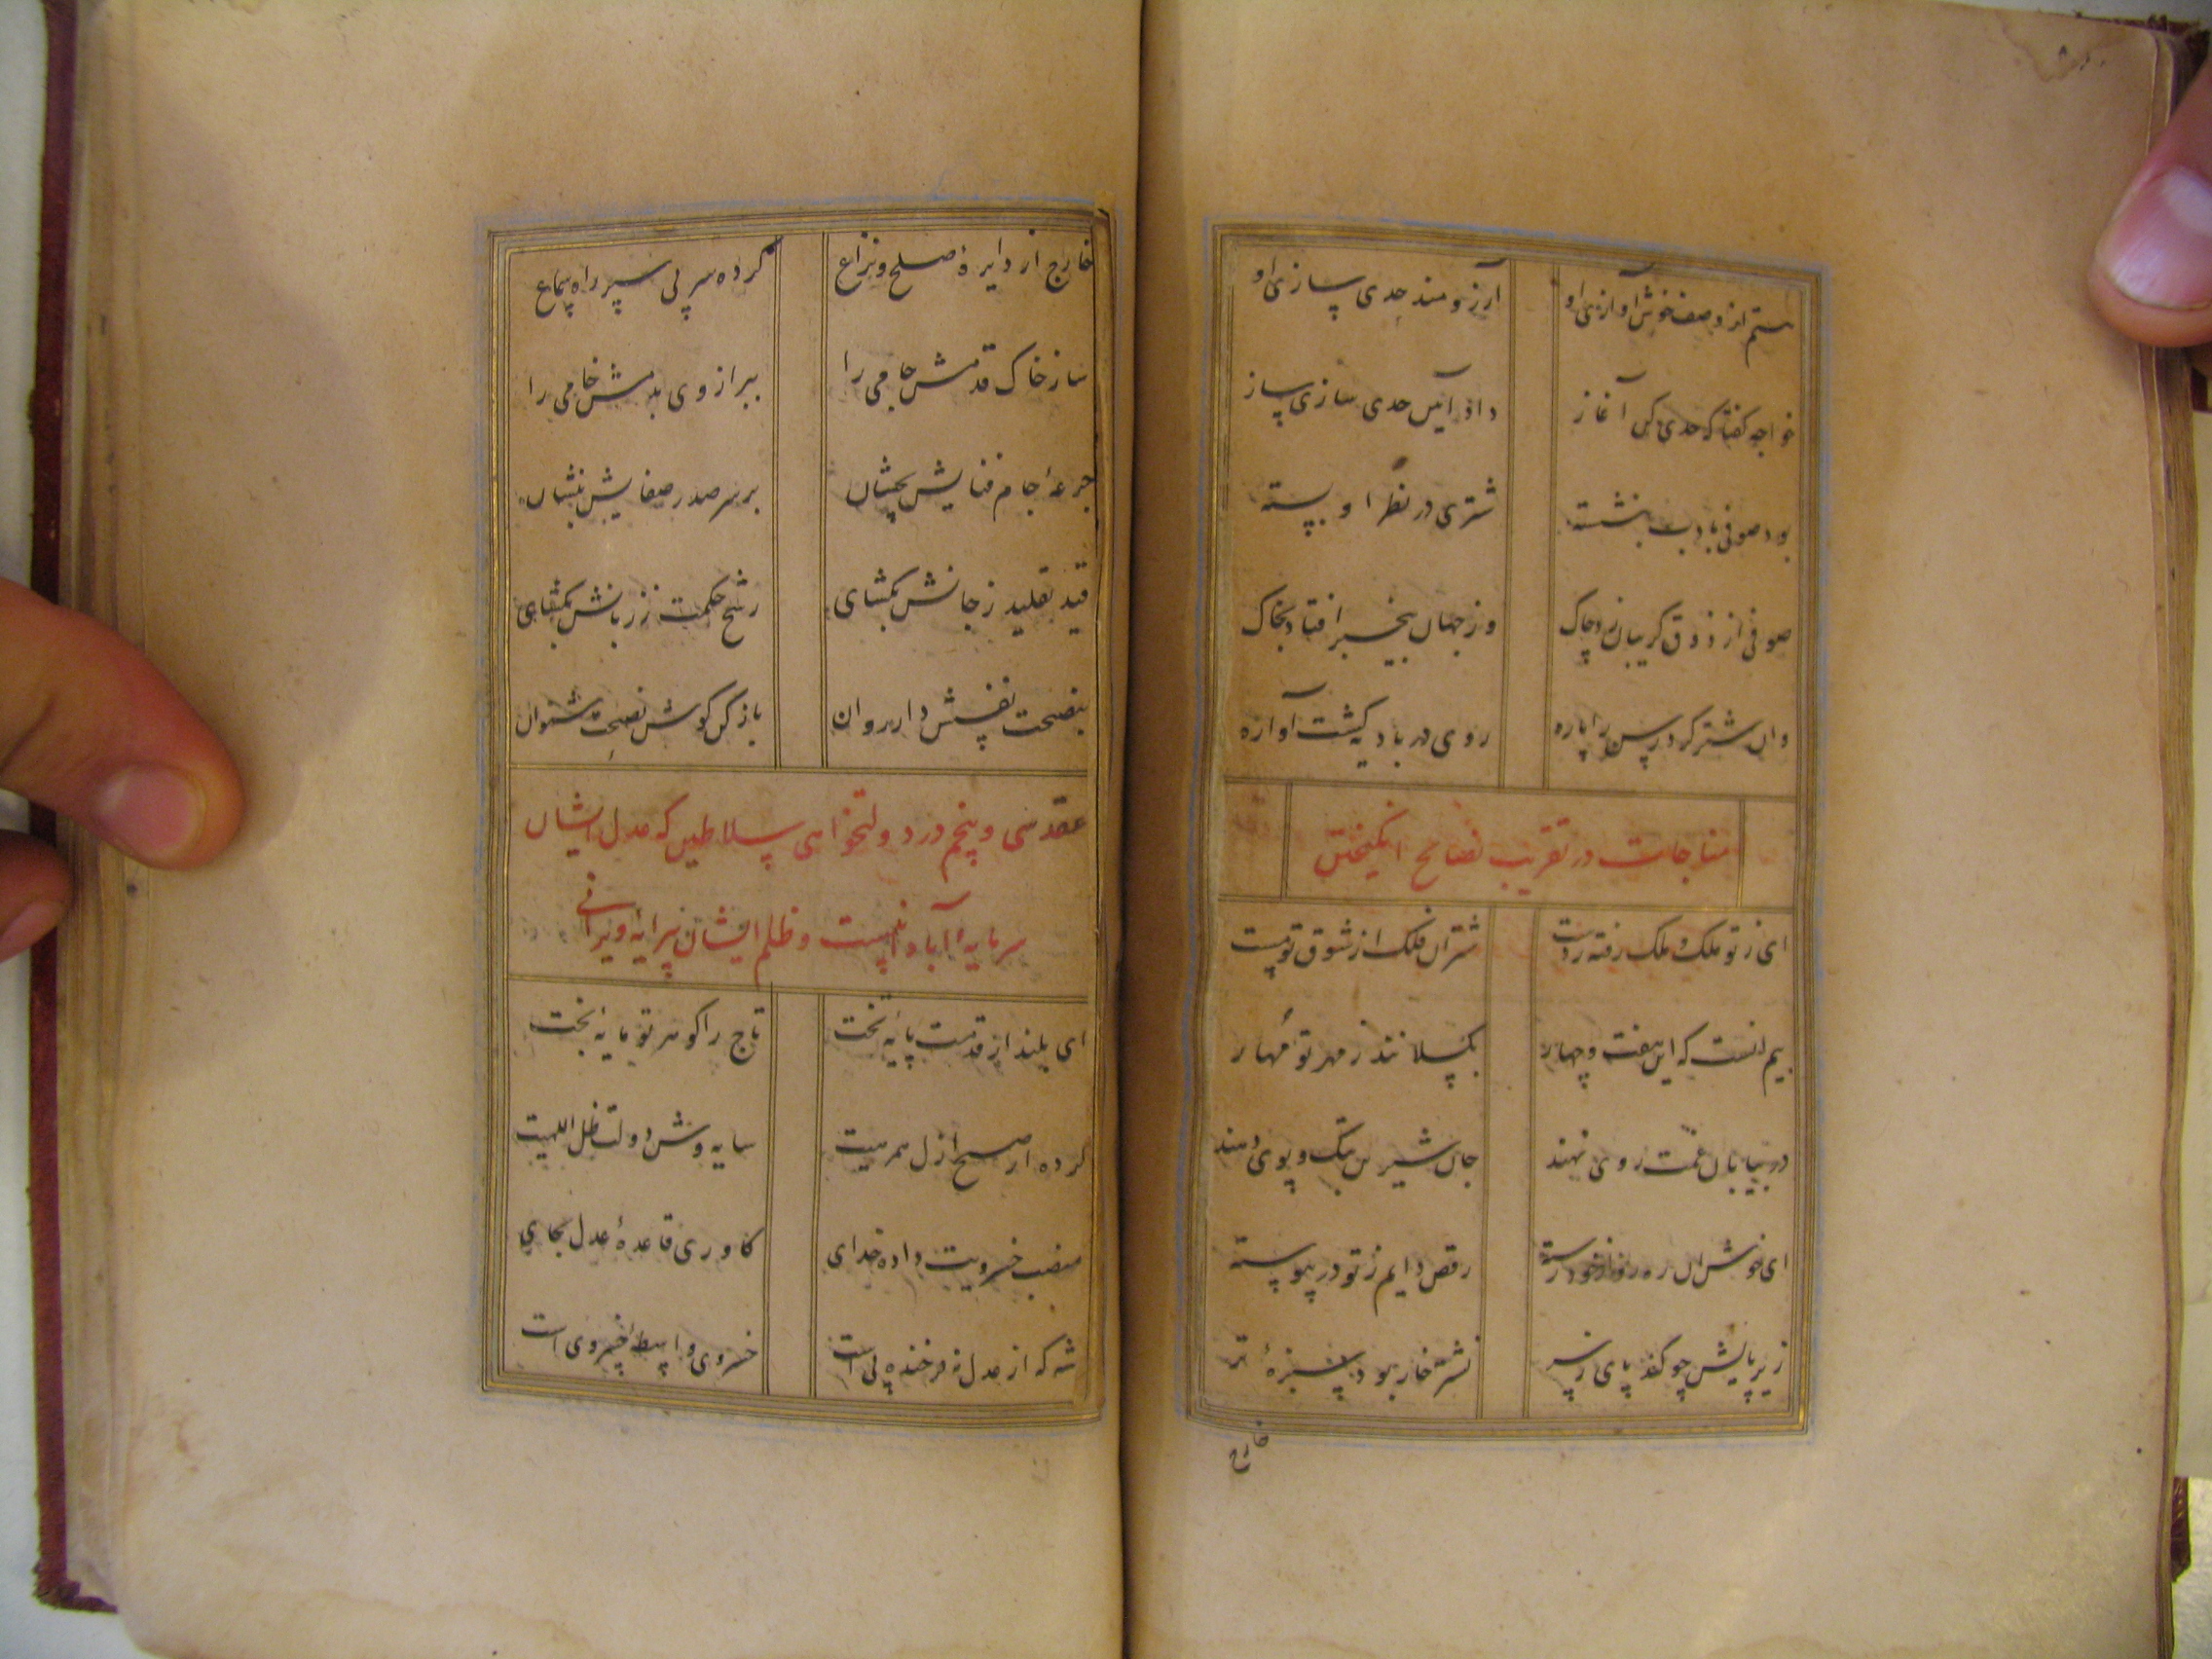 هستم از وصف خوش آوازی او
آرزومند حدی سازی او
خواجه گفتا که حدی کن آغاز
داد آیین حدی سازی ساز
بود صوفی بادب بنشسته
شتری در نظر او بسته
صوفی از ذوق گریبان زد چاک
وز جهان بیخبر افتاد بخاک
وان شتر کرد رسن را پاره
روی در بادیه گشت آواره
مناجات در تقریب نصایح انگیختن
ای ز تو ملک و ملک رفته ز دست
شتران فلک از شوق تو مست
بیم آنست که این هفت و چهار
بگسلانند ز مهر تو مهار
در بیابان غمت روی نهند
جان شیرین بتک و پوی دهند
ای خوش آن ره رو از خود رسته
رقص دایم ز تو در پیوسته
زیر پایش چو کف پای
نشتر خار بود سبزه تر
خارج
خارج از دایرهٔ صلح و نزاع
کرده سر پی سپر راه سماع
ساز خاک قدمش جامی را
ببر از وی بدمش خامی را
جرعهٔ جام فنایش بچشان
بر سر صدر صفایش بنشان
قید تقلید ز جانش بگشای
رشح حکمت ز زبانش بگشای
بنصیحت نفسش دار روان
باز کن گوش نصیحت شنوان
عقد سی و پنجم در دولتخواهی سلاطین که عدل ایشان
سرمایهٔ آبادانیست و ظلم ایشان پیرایهٔ ویرانی
ای بلند از قدمت پایهٔ تخت
تاج را گوهر تو مایهٔ بخت
کرده از صبح ازل همرهیت
سایه وش دولت ظل اللهیت
منصب خسرویت داده خدای
کاوری قاعدهٔ عدل بجای
شه که از عدل نه فرخنده پی است
خسروی واسطهٔ خسروی است